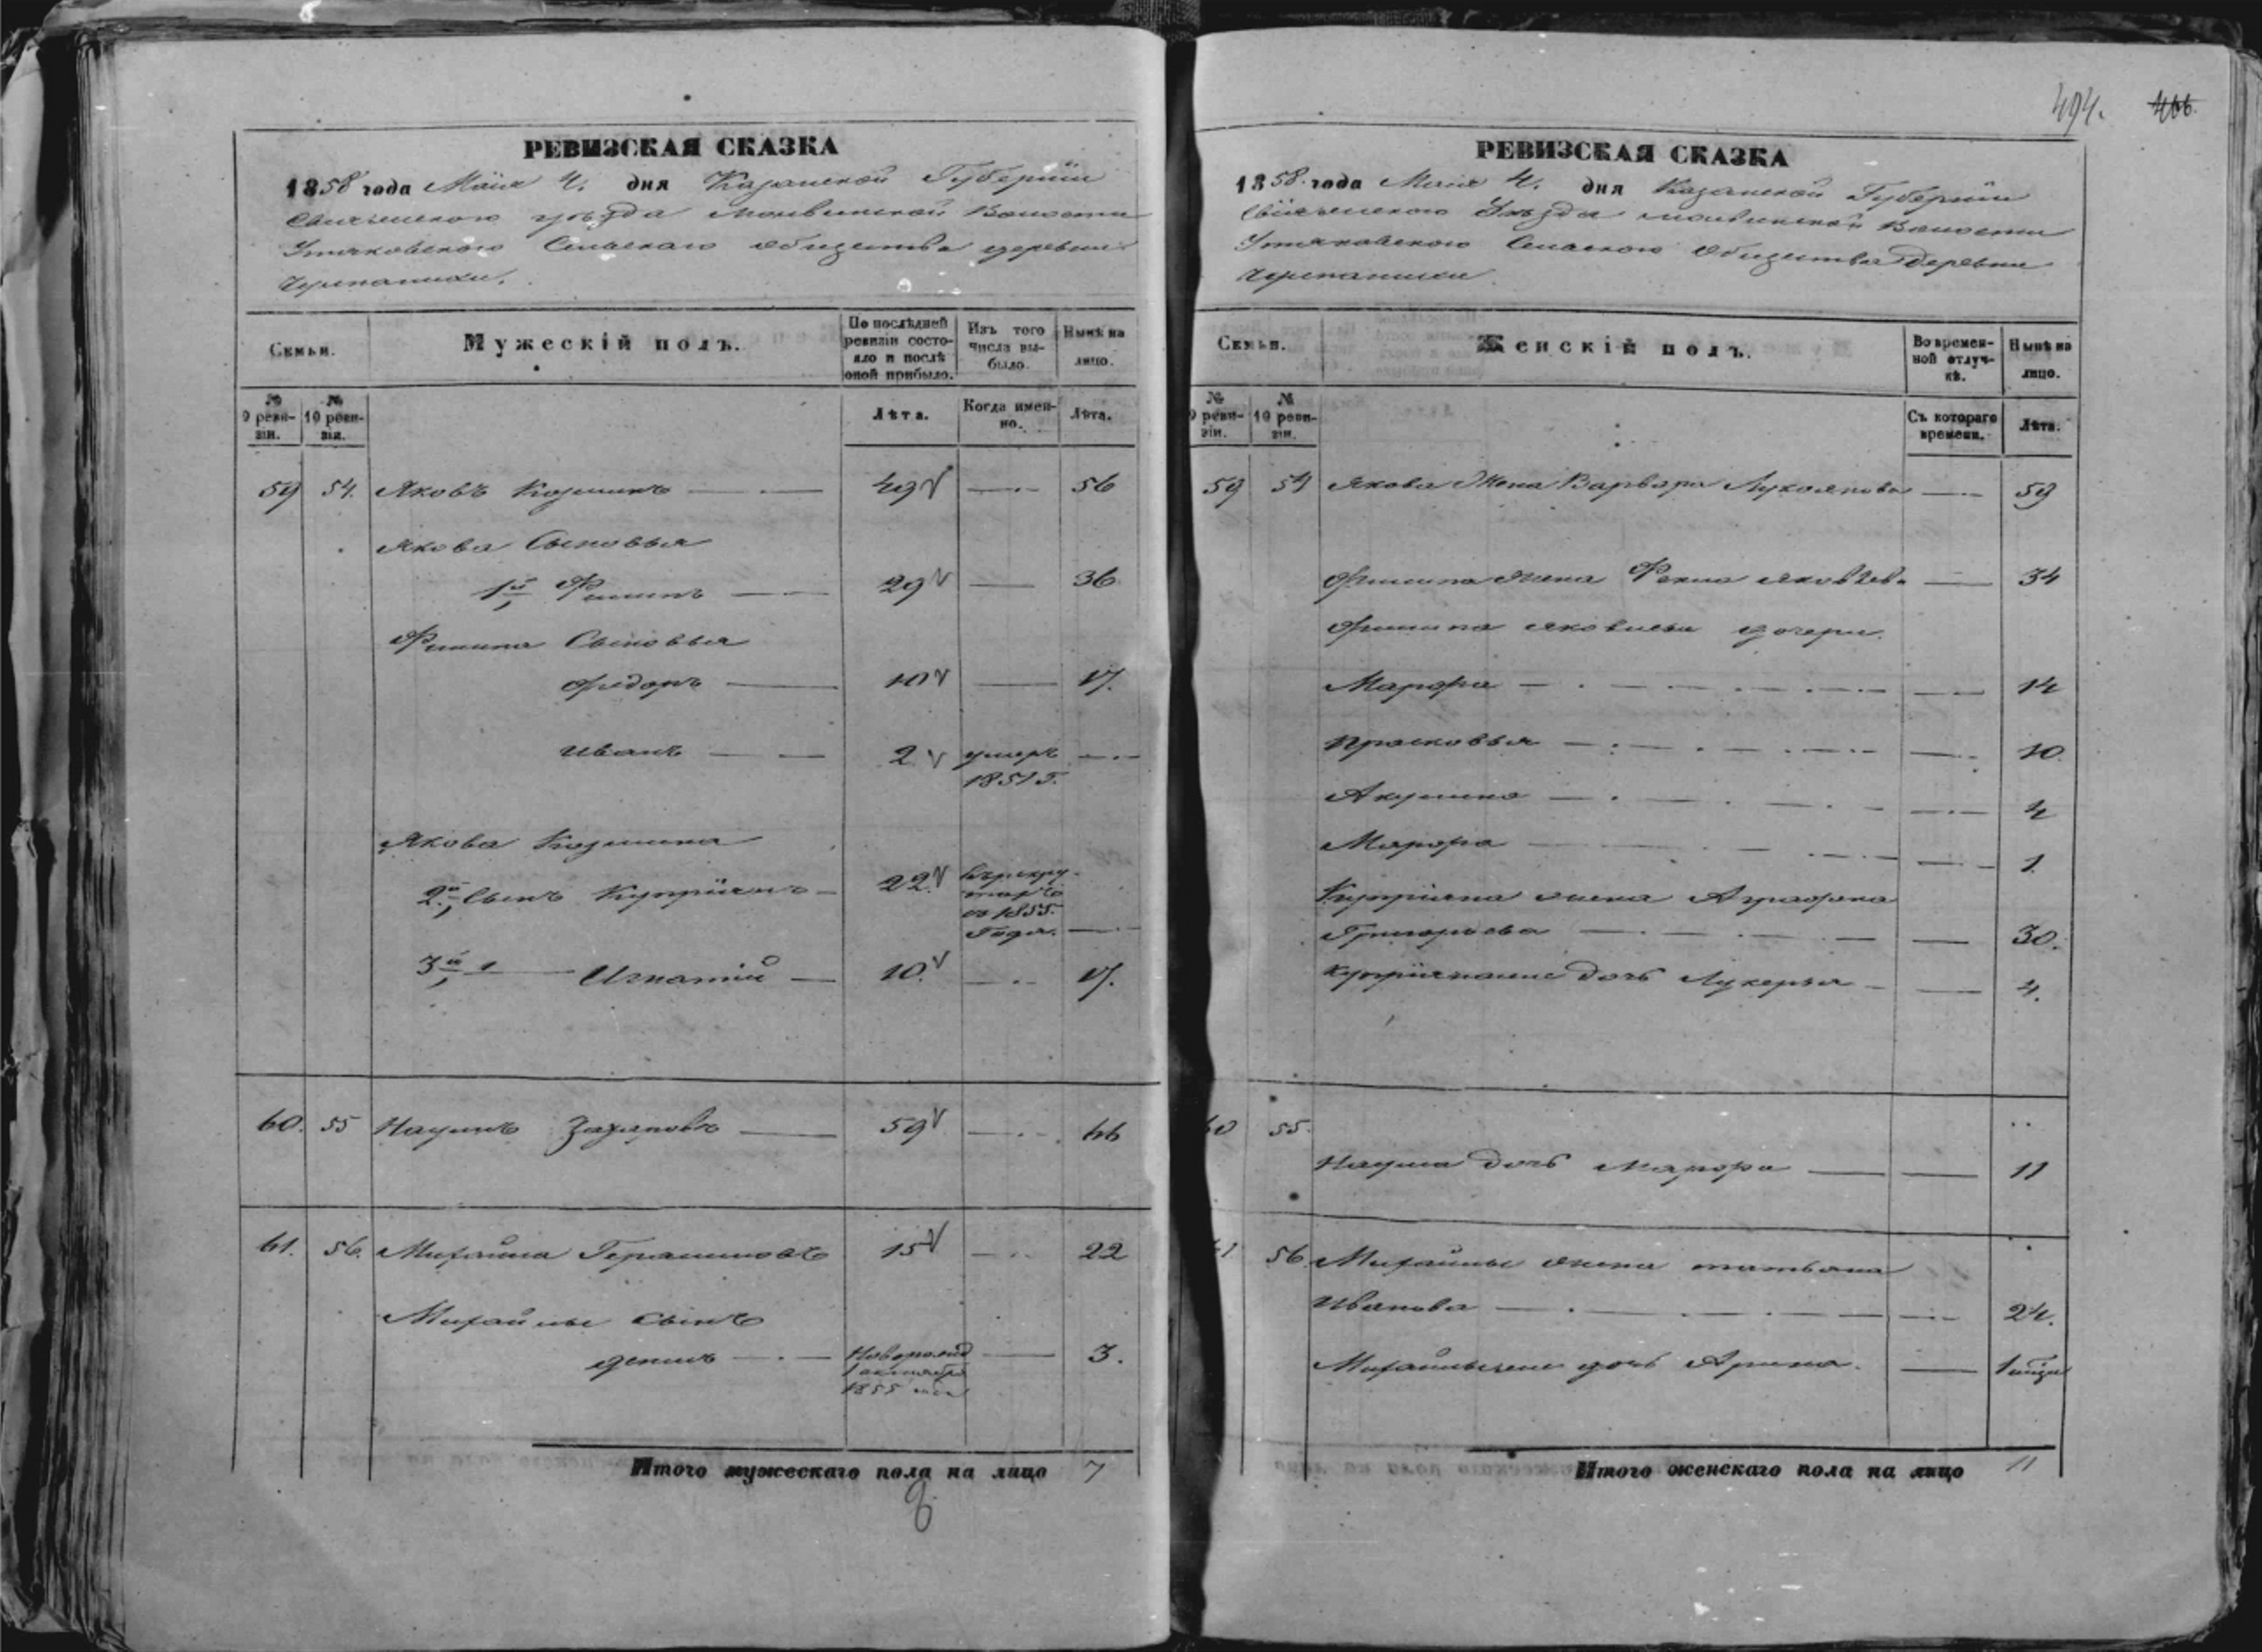 494. 466.
РЕВИЗСКАЯ СКАЗКА
1858 года Маiя 4. дня Казанской Губернiи
Свiяжскаго уѣзда Волости
Утяковскаго Сельскаго общества деревни
Семьи.
Мужескiй полъ.
По послѣдней ревизiи состояло и послѣ оной прибыло.
Изъ того числа выбыло.
Нынѣ на лицо.
№ 9 ревизiи.
№ 10 ревизiи.
Лѣта.
Когда именно.
Лѣта.
59 54. Яковъ Козминъ 49 56
Якова Сыновья
1й Филипъ 29 36
Филипа Сыновья
Федоръ 10 17.
Иванъ 2 умеръ
1851 г.
Якова Козмина
2й, Сынъ Купрiянъ 22.
въ рекру-
ты
въ 1855.
Года.
3й Игнатiй 10. 17.
60. 55 Наумъ Захаровъ 59 66
61. 56. Михайла Герасимовъ 15 22
Михайлы сынъ
Денис Новорожд 3.
1 октября
1855
Итого мужескаго пола на лицо 7
РЕВИЗСКАЯ СКАЗКА
1858. года Маiя 4. дня Казанской Губернiи
Свiяжскаго Уѣзда Волости
Утяковскаго Сельскаго Общества Деревни
Семьи.
Женскiй полъ.
Во временной отлучкѣ.
Нынѣ на лицо.
№ 9 ревизiи.
№ 10 ревизiи.
Съ котораго времени.
Лѣта.
59 54 Якова Жена Варвара Лукоянова 59
Филипа жена Фекла Яковлева 34
Филипа Яковлева дочери
Марфа 14
Прасковья 10.
Акулина 4
Марфа 1.
Купрiяна жена Аграфена
Григорьева 30.
Купрiяновые Дочь Лукерья 4.
60 55.
Наума дочь Марфа 11
61 56 Михайлы жена татьяна
Иванова 24.
дочь Арина. 1
Итого женскаго пола на лицо 11